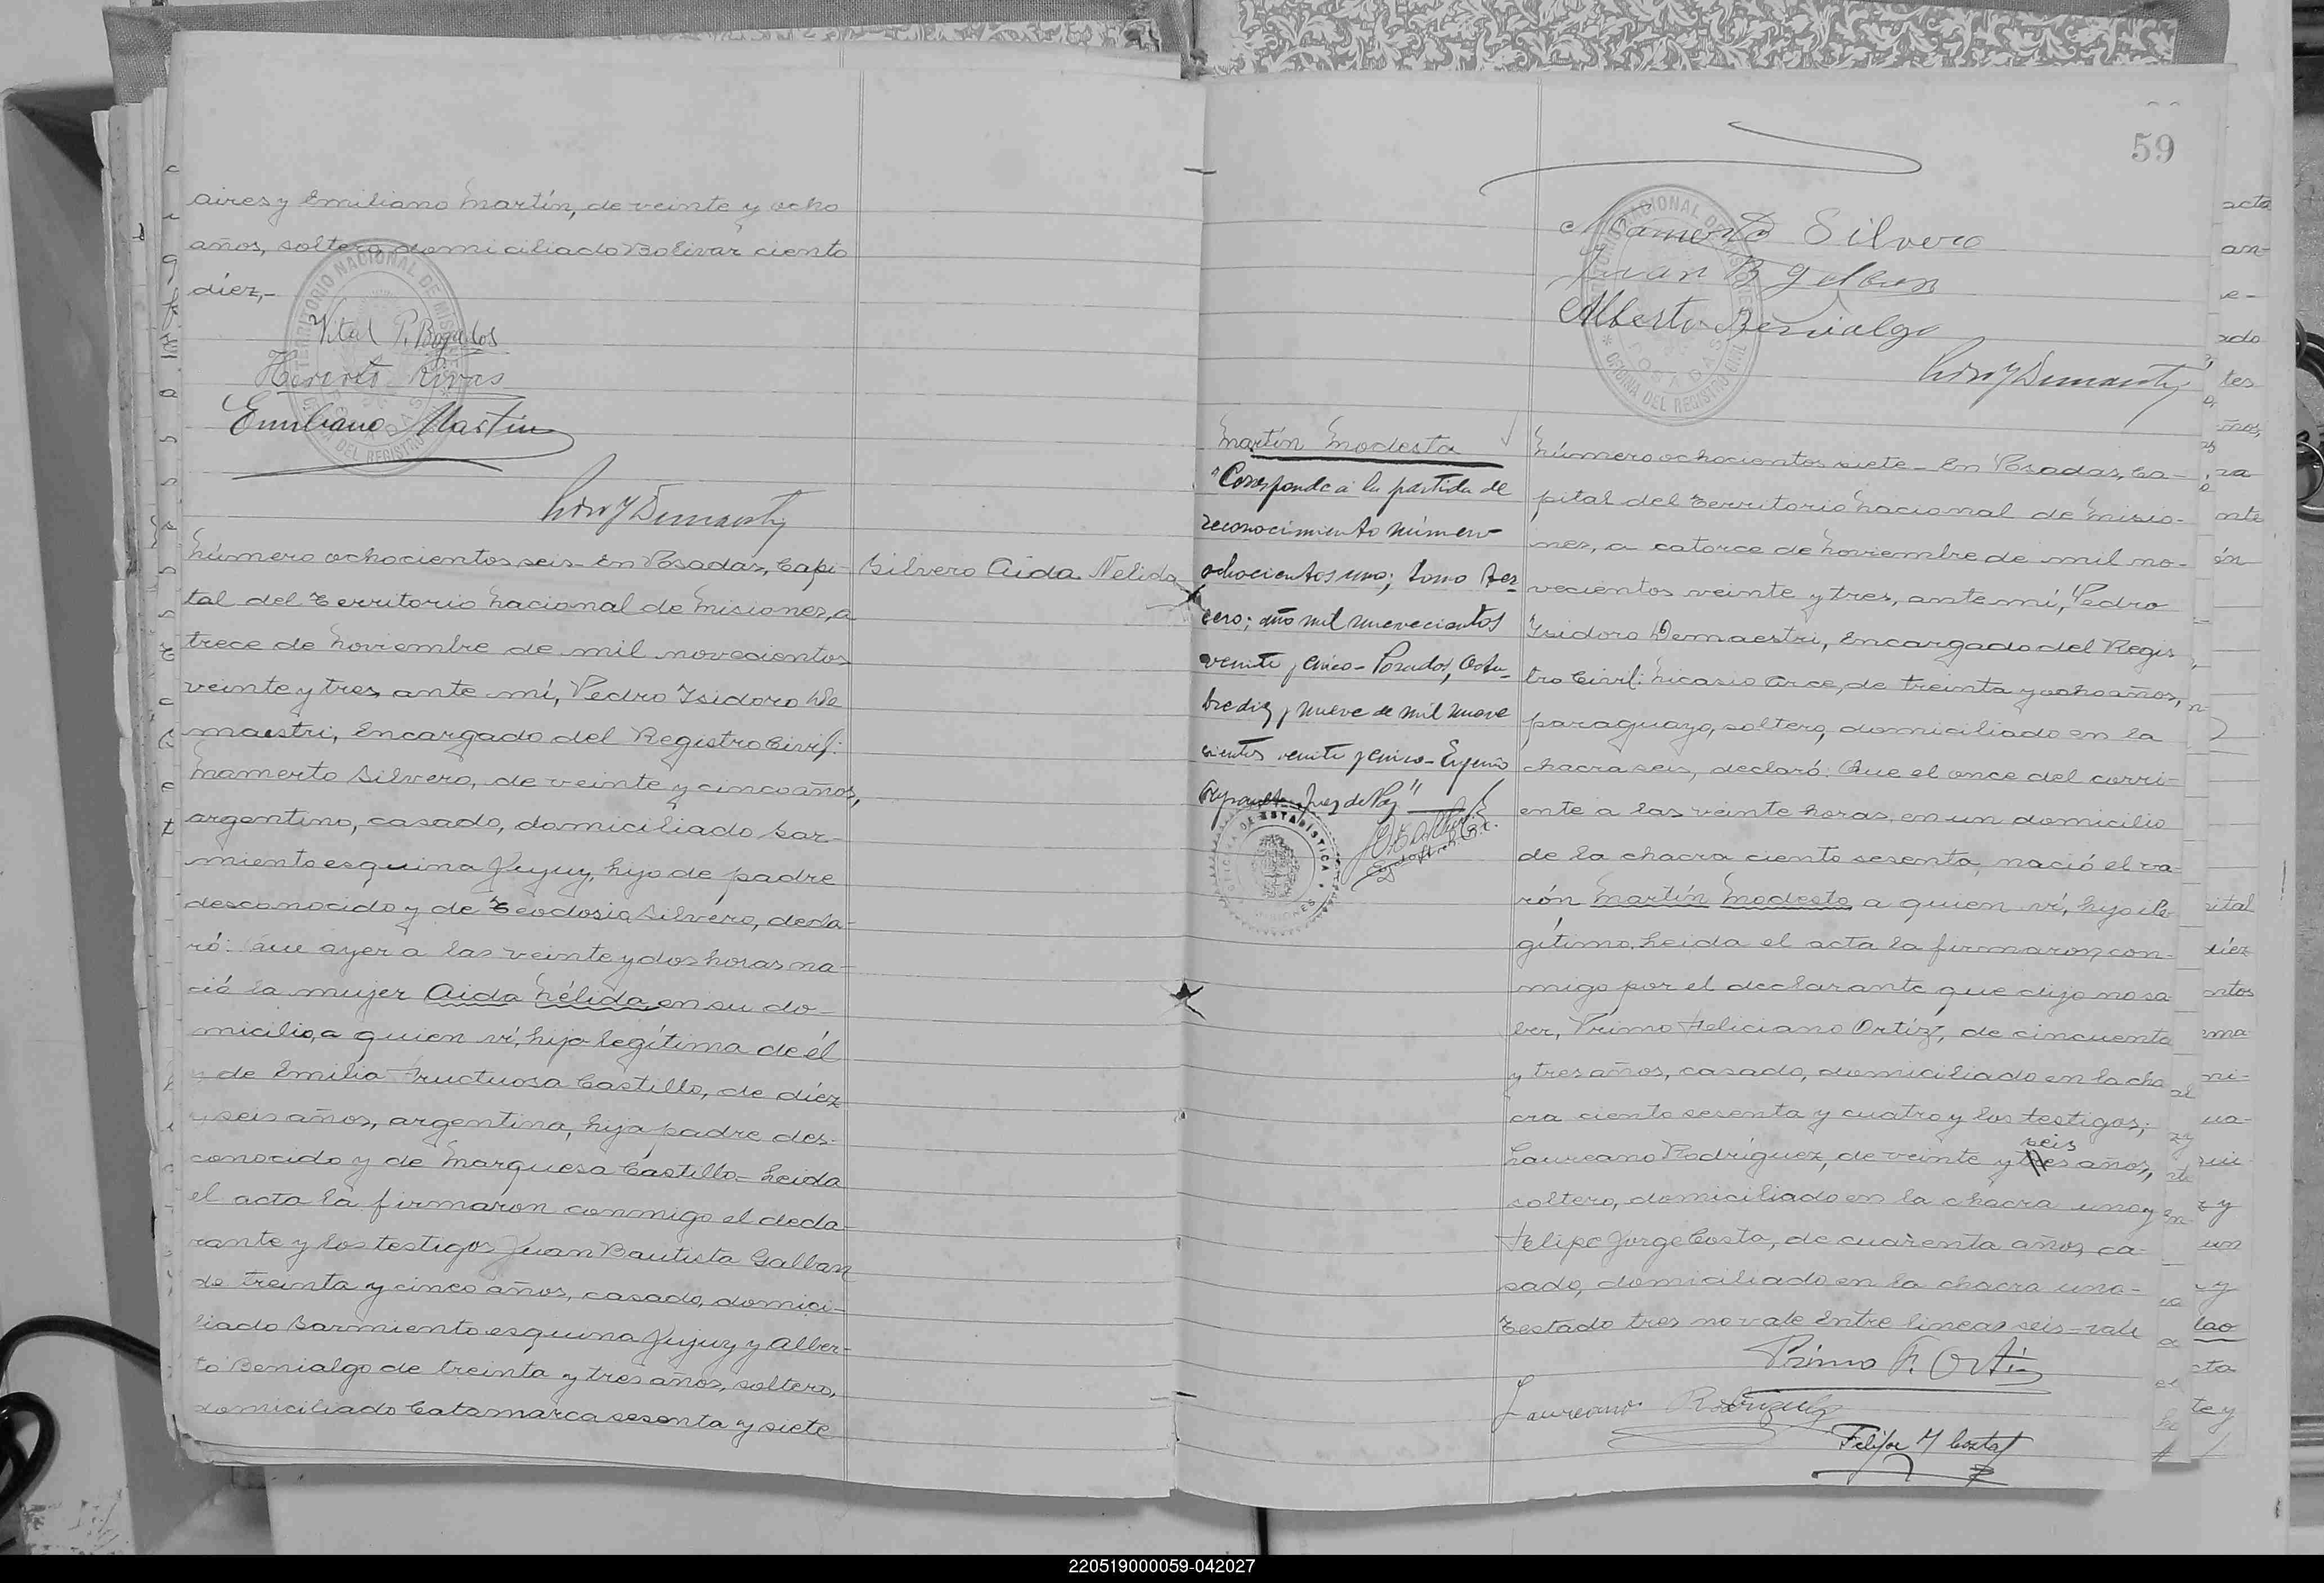 aires y Emiliano Martín, de veinte y ocho
años, soltero, domiciliado Bolivar ciento
diez,-
Vital P. Bogados
Heriberto Rivas
Emiliano Martin
Número ochocientos seis- En Posadas, Capi-
tal del Territorio Nacional de Misiones, a
trece de Noviembre de mil novecientos
veinte y tres, ante mí, Pedro Isidoro De
maestri, Encargado del Registro Civil:
Mamerto Silvero, de veinte y cinco años,
argentino, casado, domiciliado Sar-
miento esquina Jujuy, hijo de padre
desconocido y de Teodosia Silvero, decla-
ró: Que ayer a las veinte y dos horas na-
ció la mujer Aida Nélida, en su do-
micilio, a quien ví, hija legítima de él
y de Emilia Fructuosa Castillo, de diéz
y seis años, argentina, hija padre des-
conocido y de Marquesa Castillo- Leida
el acta la firmaron conmigo el decla-
rante y los testigos Juan Bautista Galban
de treinta y cinco años, casado, domici-
liado Sarmiento esquina Jujuy y Alber-
to Benialgo de treinta y tres años, soltero,
domiciliado Catamarca sesenta y siete
Silvero Aida Nelida
59
Mamerto Silvero
Juan B Galban
Alberto Benialgo
Martín Modesta
"Corresponde a la partida de
reconocimiento número
ochocientos uno; tomo ter-
cero; año mil nuevecientos
veinte y cinco- Posadas, Octu-
bre diez y nueve de mil nueve
cientos veinte y cinco- Eugenio
Juez de Paz"
OFICINA DE ESTADISTICA
MISIONES
Número ochocientos siete- En Posadas, Ca-
pital del Territorio Nacional de Misio-
nes, a catorce de Noviembre de mil no-
vecientos veinte y tres, ante mí, Pedro
Isidoro Demaestri, Encargado del Regis
tro Civil: Nicasio Arce, de treinta y ocho años,
paraguayo, soltero, domiciliado en la
chacra seis, declaró: Que el once del corri-
ente a las veinte horas, en un domicilio
de la chacra ciento sesenta, nació el va-
rón Martín Modesto a quien ví, hijo ile
gítimo. Leida el acta la firmaron con-
migo por el declarante que dijo no sa
ber, Primo Feliciano Ortiz, de cincuenta
y tres años, casado, domiciliado en la cha
cra ciento sesenta y cuatro y los testigos;
seis
Laureano Rodríguez, de veinte y tres años,
soltero, domiciliado en la chacra uno y
Felipe Jorge Costa, de cuarenta años, ca-
sado, domiciliado en la chacra uno-
Testado tres no vale Entre lineas seis-vale
Primo F. Ortiz
Laureano Rodriguez
Felipe J Costa
220519000059-042027